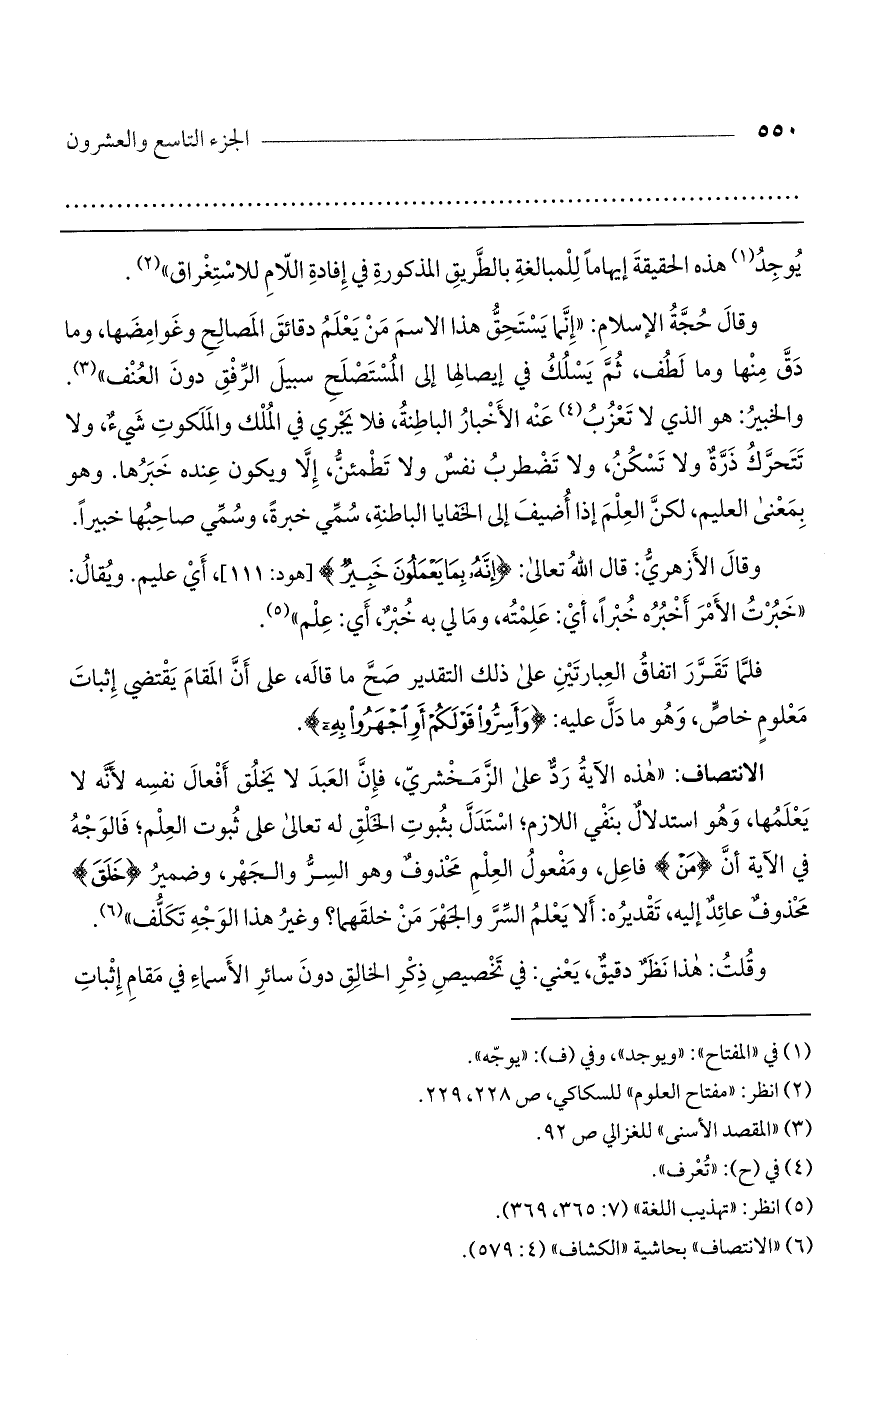 ٥٥٠ الجزء التاسع والعشرون
يُوجِدُ(١) هذه الحقيقةَ إيهاماً لِلْمبالغةِ بالطَّريقِ المذكورةِ في إفادةِ اللّامِ للاسْتِغْراق»(٢).
وقالَ حُجَّةُ الإسلامِ: «إنَّما يَسْتَحِقُّ هذا الاسمَ مَنْ يَعْلَمُ دقائقَ المَصالحِ وغَوامِضَها، وما
دَقَّ مِنْها وما لَطُف، ثُمَّ يَسْلُكُ في إيصالِها إلى المُسْتَصْلَحِ سبيلَ الرِّفْقِ دونَ العُنْف»(٣).
والخبيرُ: هو الذي لا تَعْزُبُ(٤) عَنْه الأخْبارُ الباطِنةُ، فلا يَجْري في المُلْك والمَلَكوتِ شَيءٌ، ولا
تَتَحرَّكُ ذَرَّةٌ ولا تَسْكُنُ، ولا تَضْطربُ نفسٌ ولا تَطْمئنُّ، إلّا ويكون عِنده خَبَرُها. وهو
بِمَعْنىٰ العليم، لكنَّ العِلْمَ إذا أُضيفَ إلى الخفايا الباطنةِ، سُمِّي خبرةً، وسُمِّي صاحِبُها خبيراً.
وقالَ الأزهريُّ: قال اللهُ تعالىٰ: ﴿إِنَّهُۥ بِمَا يَعۡمَلُونَ خَبِيرٞ﴾ [هود: ١١١]، أيْ عليم. ويُقالُ:
«خَبُرْتُ الأمْرَ أخْبُرُه خُبْراً، أيْ: عَلِمْتُه، ومَا لي به خُبْرٌ، أي: عِلْم»(٥).
فلمَّا تَقَرَّرَ اتفاقُ العِبارتَيْنِ علىٰ ذلك التقدير صَحَّ ما قالَه، على أنَّ المَقامَ يَقْتضي إثباتَ
مَعْلومٍ خاصٍّ، وَهُو ما دَلَّ عليه: ﴿وَأَسِرُّواْ قَوۡلَكُمۡ أَوِ ٱجۡهَرُواْ بِهِۦٓ﴾.
الانتصاف: «هٰذه الآيةُ رَدٌّ علىٰ الزَّمَخْشريّ، فإنَّ العَبدَ لا يَخلُق أفْعالَ نفسِه لأنَّه لا
يَعْلَمُها، وَهُو استدلالٌ بنَفْي اللازم؛ اسْتَدَلَّ بثبوتِ الخَلْقِ له تعالىٰ على ثُبوت العِلْم؛ فَالوَجْهُ
في الآية أنَّ ﴿مَنۡ﴾ فاعِل، ومَفْعولُ العِلْمِ مَحْذوفٌ وهو السِرُّ والـجَهْر، وضميرُ ﴿خَلَقَ﴾
مَحْذوفٌ عائِدٌ إليه، تَقْديرُه: ألا يَعْلمُ السِّرَّ والجَهْرَ مَنْ خلقَهما؟ وغيرُ هذا الوَجْهِ تَكَلُّف»(٦).
وقُلتُ: هٰذا نَظَرٌ دقيقٌ، يَعْني: في تَخْصيصِ ذِكْرِ الخالِقِ دونَ سائرِ الأسماءِ في مَقامِ إثْباتِ
(١) في «المفتاح»: «ويوجد»، وفي (ف): «يوجّه».
(٢) انظر: «مفتاح العلوم» للسكاكي، ص ٢٢٨، ٢٢٩.
(٣) «المقصد الأسنى» للغزالي ص ٩٢.
(٤) في (ح): «تُعْرف».
(٥) انظر: «تهذيب اللغة» (٧: ٣٦٥، ٣٦٩).
(٦) «الانتصاف» بحاشية «الكشاف» (٤: ٥٧٩).